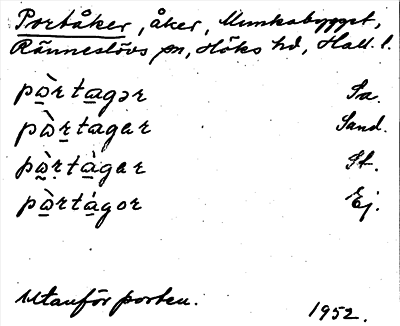 Portåker, åker, Munkabygget,
Ränneslövs sn, Höks hd, Hall. l.
pɷ̀rtagər Sa.
pɷ̀rtagar Sand.
pɷ̀rtàgar St.
pɷ̀rtágor Ej.
Utanför porten.
1952.